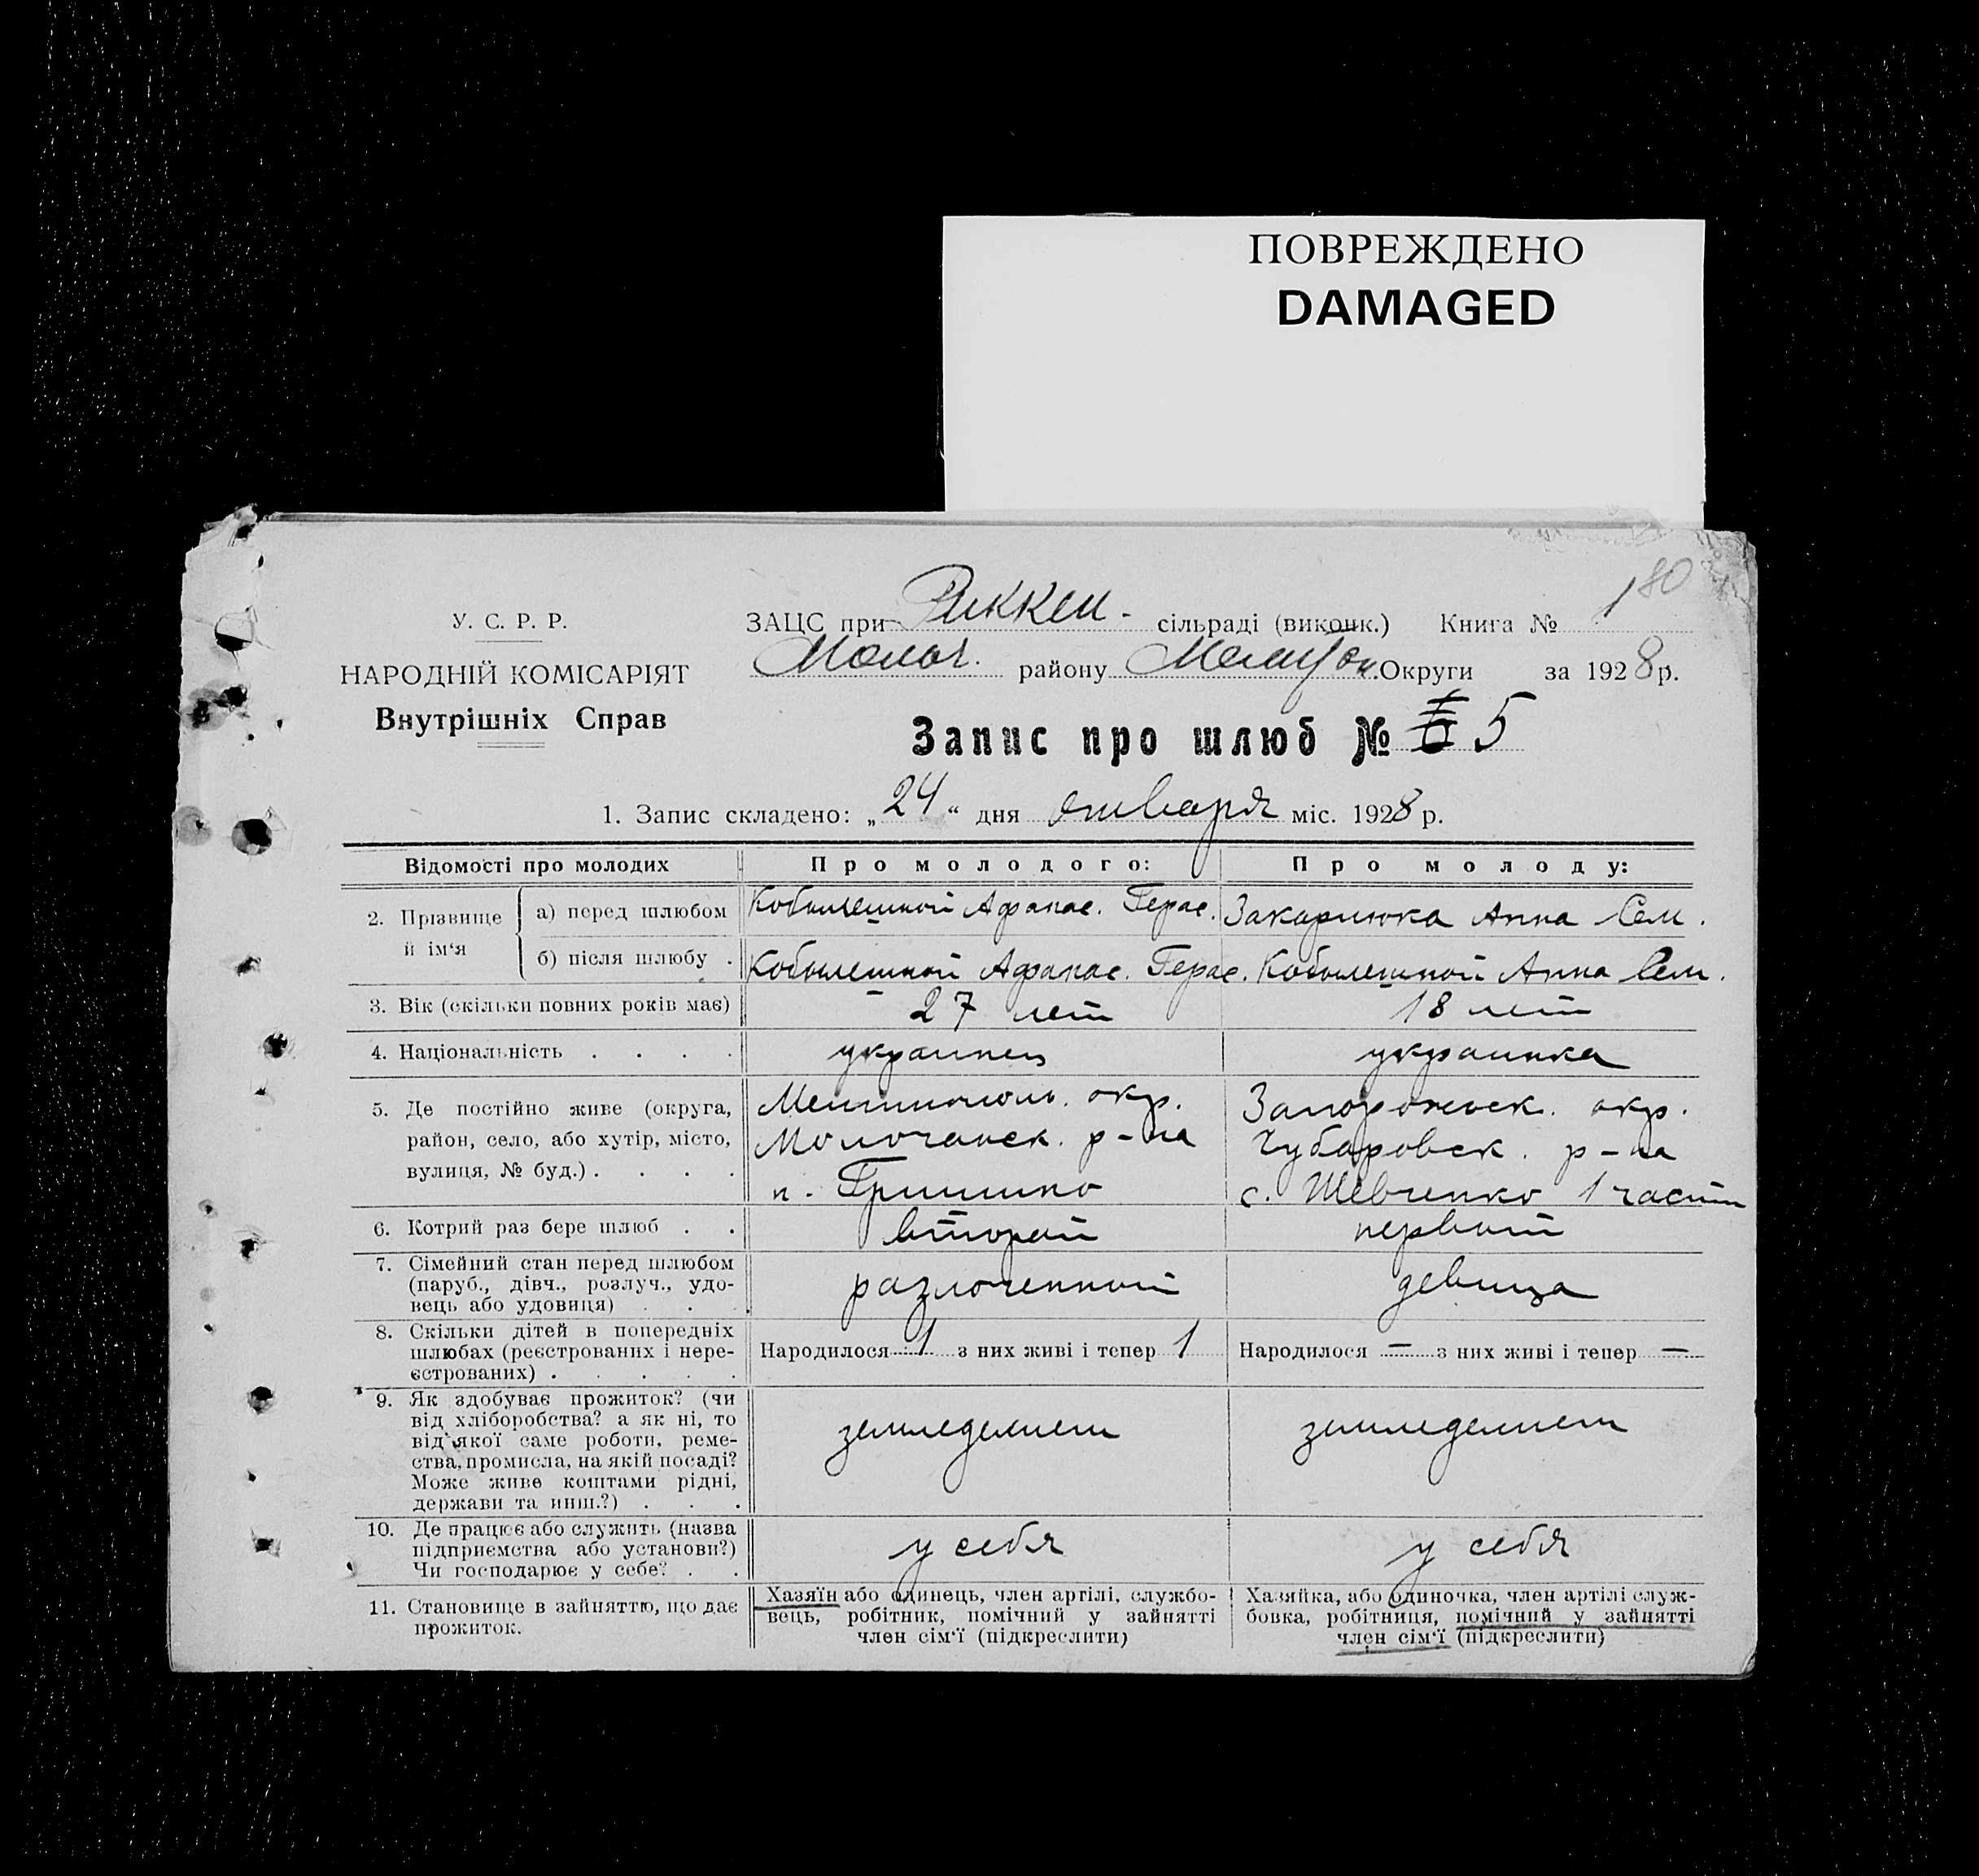 ПОВРЕЖДЕНО
DAMAGED
180
У. С. Р. Р.
НАРОДНІЙ КОМІСАРІЯТ
Внутрішніх Справ
ЗАЦС при Риккен- сільраді (виконк.) Книга № 1
Молоч. району Мелитоп. Округи за 1928 р.
Запис про шлюб № 5
1. Запис складено: „24“ дня января міс. 1928 р.
Відомості про молодих Про молодого: Про молоду:
2. Прізвище й ім‘я
а) перед шлюбом Кобылешной Афанас. Герас. Закарлюка Анна Сем.
б) після шлюбу . Кобылешной Афанас. Герас. Кобылешной Анна Сем.
3. Вік (скільки повних років має) 27 лет 18 лет
4. Національність . . . . украинец украинка
5. Де постійно живе (округа, Мелитополь. окр. Запорожск. окр.
район, село, або хутір, місто, Молочанск. р-на Чубаровск. р-на
вулиця, № буд.) . . . . п. Гришино с. Шевченко 1 части
6. Котрий раз бере шлюб . . второй первый
7. Сімейний стан перед шлюбом
(паруб., дівч., розлуч., удо- разлученный девица
вець або удовиця) . . .
8. Скільки дітей в попередніх
шлюбах (реєстрованих і нере- Народилося 1 з них живі і тепер 1 Народилося — з них живі і тепер —
єстрованих) . . . . .
9. Як здобуває прожиток? (чи
від хліборобства? а як ні, то земледелием земледелием
від якої саме роботи, реме-
ства, промисла, на якій посаді?
Може живе коштами рідні,
держави та инш.?) . . .
10. Де працює або служить (назва
підприємства або установи?) у себя у себя
Чи господарює у себе? . .
11. Становище в зайняттю, що дає
прожиток.
Хазяїн або одинець, член артілі, службо-
вець, робітник, помічний у зайнятті
член сім‘ї (підкреслити)
Хазяйка, або одиночка, член артілі служ-
бовка, робітниця, помічний у зайнятті
член сім‘ї (підкреслити)